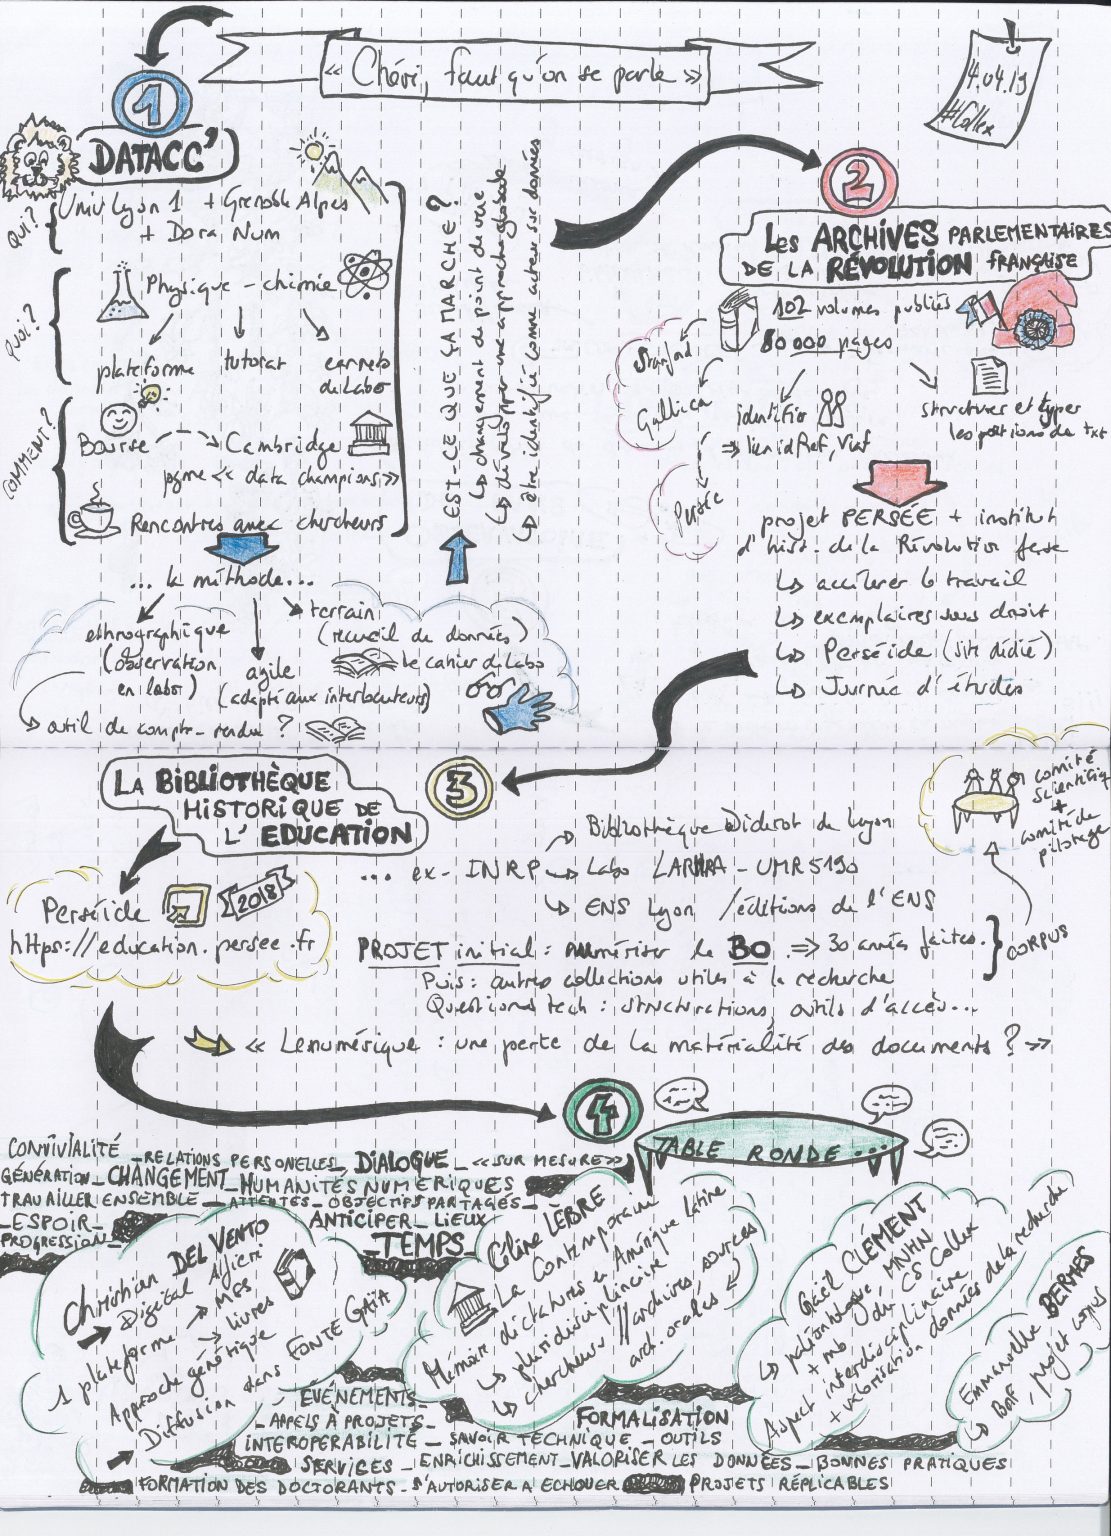 « Chéri, faut qu'on se parle »
4.04.19
#Collex
1
DATACC'
QUI?
Univ Lyon 1 + Grenoble Alpes
+ Dora Num
QUOI?
Physique - chimie
plateforme
tutorat
carnets
de Labo
COMMENT?
Bourse
Cambridge
pgme << data champions >>
Rencontres avec chercheurs
... la méthode...
ethnographique
(observation
en labo)
agile
(adapté aux interlocuteurs)
terrain
(recueil de données)
le cahier de labo
outil de compte-rendu ?
EST-CE QUE ÇA MARCHE ?
↳ changement de point de vue
↳ développer une approche globale
↳ être identifié comme acteur sur données
2
Les ARCHIVES PARLEMENTAIRES
DE LA RÉVOLUTION FRANÇAISE
102 volumes publiés
80 000 pages
Stanford
Gallica
Persée
identifier
=> lien idRef, Viaf
structurer et typer
les portions de txt
projet PERSÉE + institut
d'hist. de la Révolution fcse
↳ accélérer le travail
↳ exemplaires sous droit
↳ Perséide (site dédié)
↳ Journée d'études
3
LA BIBLIOTHÈQUE
HISTORIQUE DE
L'EDUCATION
Perséide
2018
https://education.persee.fr
... ex- INRP
Bibliothèque Diderot de Lyon
Labo LARHRA - UMR 5190
↳ ENS Lyon / éditions de l'ENS
comité
scientifiq
+
comité de
pilotage
PROJET initial : numériser le BO => 30 années faites.
Puis : autres collections utiles à la recherche
Questions tech : structurations, outils d'accès...
CORPUS
« Le numérique : une perte de la matérialité des documents ? »
4
TABLE RONDE ...
CONVIVIALITÉ _ RELATIONS PERSONELLES _ DIALOGUE _ << SUR MESURE >>
GÉNÉRATION _ CHANGEMENT _ HUMANITÉS NUMÉRIQUES
TRAVAILLER ENSEMBLE _ ATTENTES _ OBJECTIFS PARTAGÉS _
_ ESPOIR _
ANTICIPER _ LIEUX
PROGRESSION _
_ TEMPS _
Christian DEL VENTO
Digital Alfieri
1 plateforme → MSS
→ livres
Approche génétique
Diffusion dans FONTE GAIA
Céline LÈBRE
La Contemporaine
Mémoire dictatures en Amérique Latine
↳ pluridisciplinaire
↳ chercheurs // archives, sources
arch. orales
Gaël CLÉMENT
↳ paléontologue, MNHN
+ mb du CS Collex
Aspect interdisciplinaire
+ valorisation données de la recherche
Emmanuelle BERMES
↳ BnF, projet corpus
ÉVÉNEMENTS _
_ APPELS À PROJETS _
FORMALISATION
INTEROPERABILITÉ _ SAVOIR TECHNIQUE _ OUTILS
SERVICES _ ENRICHISSEMENT _ VALORISER LES DONNÉES _ BONNES PRATIQUES
FORMATION DES DOCTORANTS _ S'AUTORISER A ECHOUER
PROJETS RÉPLICABLES